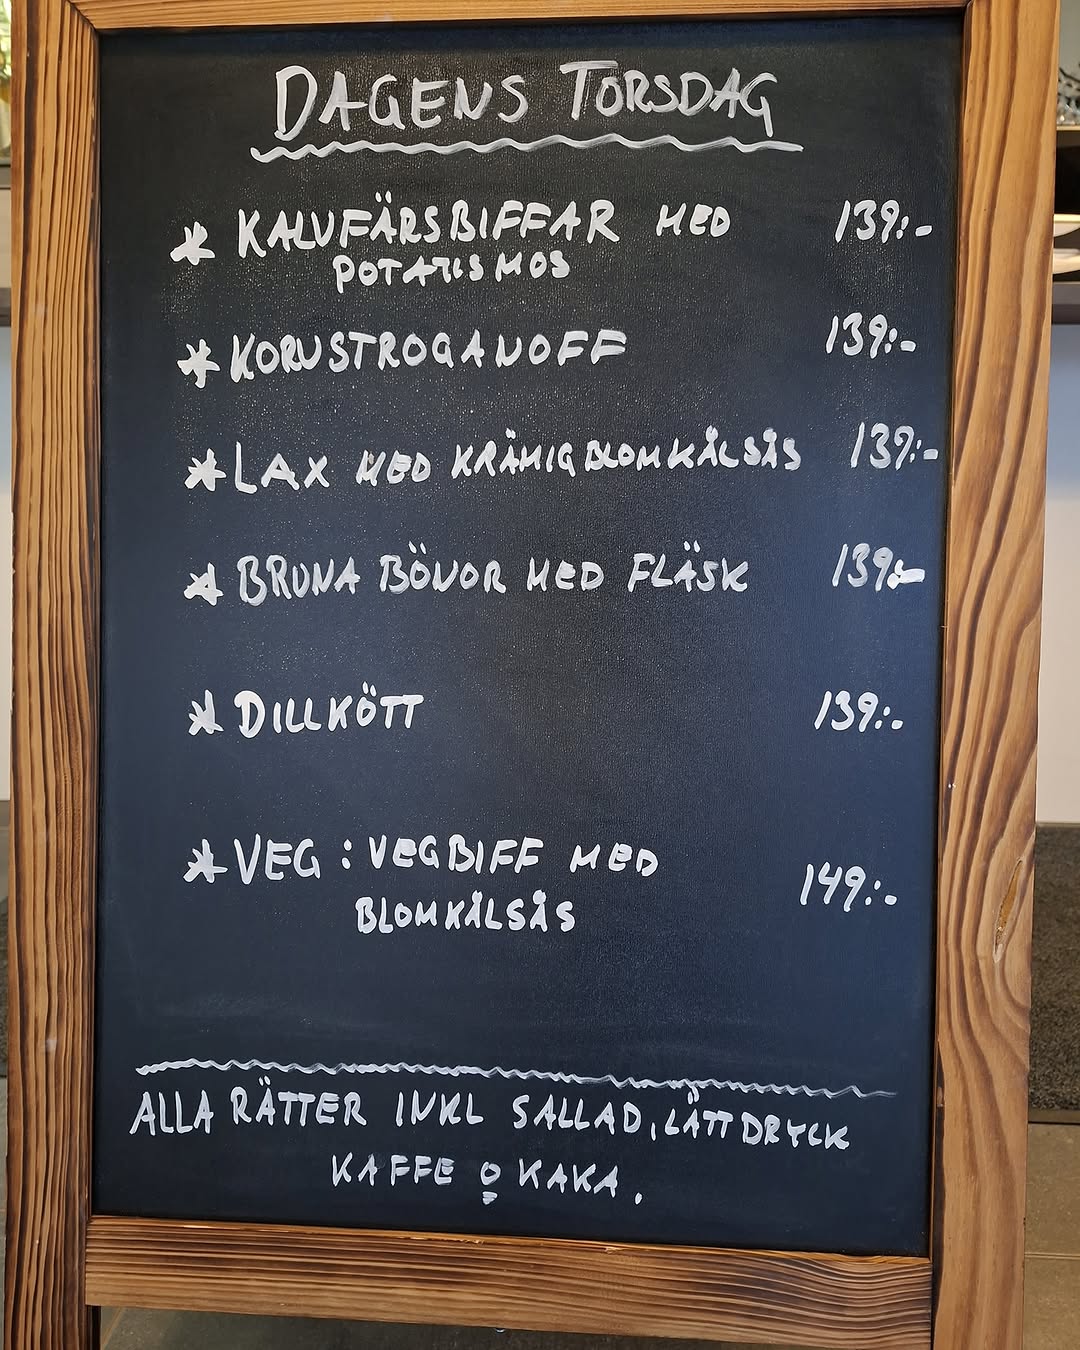 DAGENS TORSDAG
* KALVFÄRSBIFFAR MED 139:-
POTATISMOS
* KORVSTROGANOFF 139:-
* LAX MED KRÄMIG BLOMKÅLSÅS 139:-
* BRUNA BÖNOR MED FLÄSK 139:-
* DILLKÖTT 139:-
* VEG : VEGBIFF MED 149:-
BLOMKÅLSÅS
ALLA RÄTTER INKL SALLAD, LÄTTDRYCK
KAFFE o KAKA.